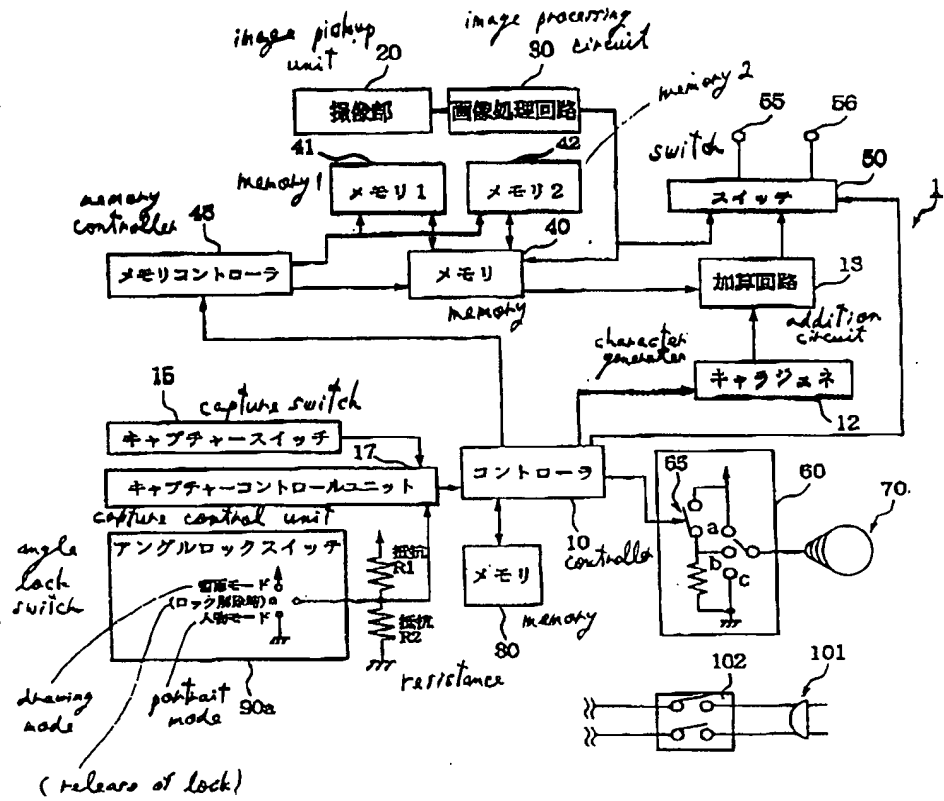 image pickup
unit
20
image processing
circuit
30
memory 2
撮像部
画像処理回路
55
56
switch
50
スイッチ
1
41
42
memory 1
メモリ1
メモリ2
memory
controller
45
メモリコントローラ
40
メモリ
memory
加算回路
13
addition
circuit
character
generator
キャラジェネ
12
16
capture switch
キャプチャースイッチ
17
キャプチャーコントロールユニット
capture control unit
コントローラ
10 controller
65
60
70
a
b
c
angle
lock
switch
アングルロックスイッチ
書画モード
(ロック解除時)
人物モード
抵抗
R1
抵抗
R2
resistance
メモリ
memory
80
drawing
mode
portrait
mode
90a
(release of lock)
102
101